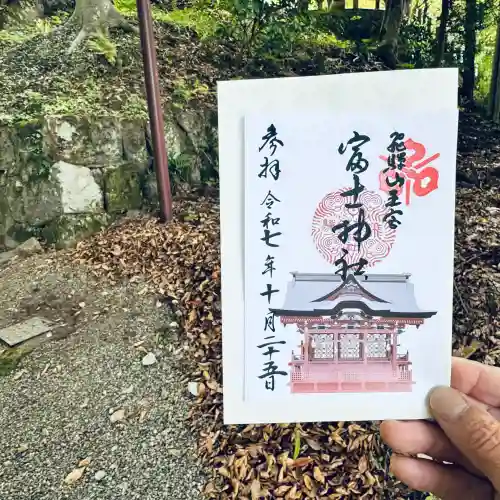 飛騨山王宮
富士神社
参拝 令和七年十月二十五日